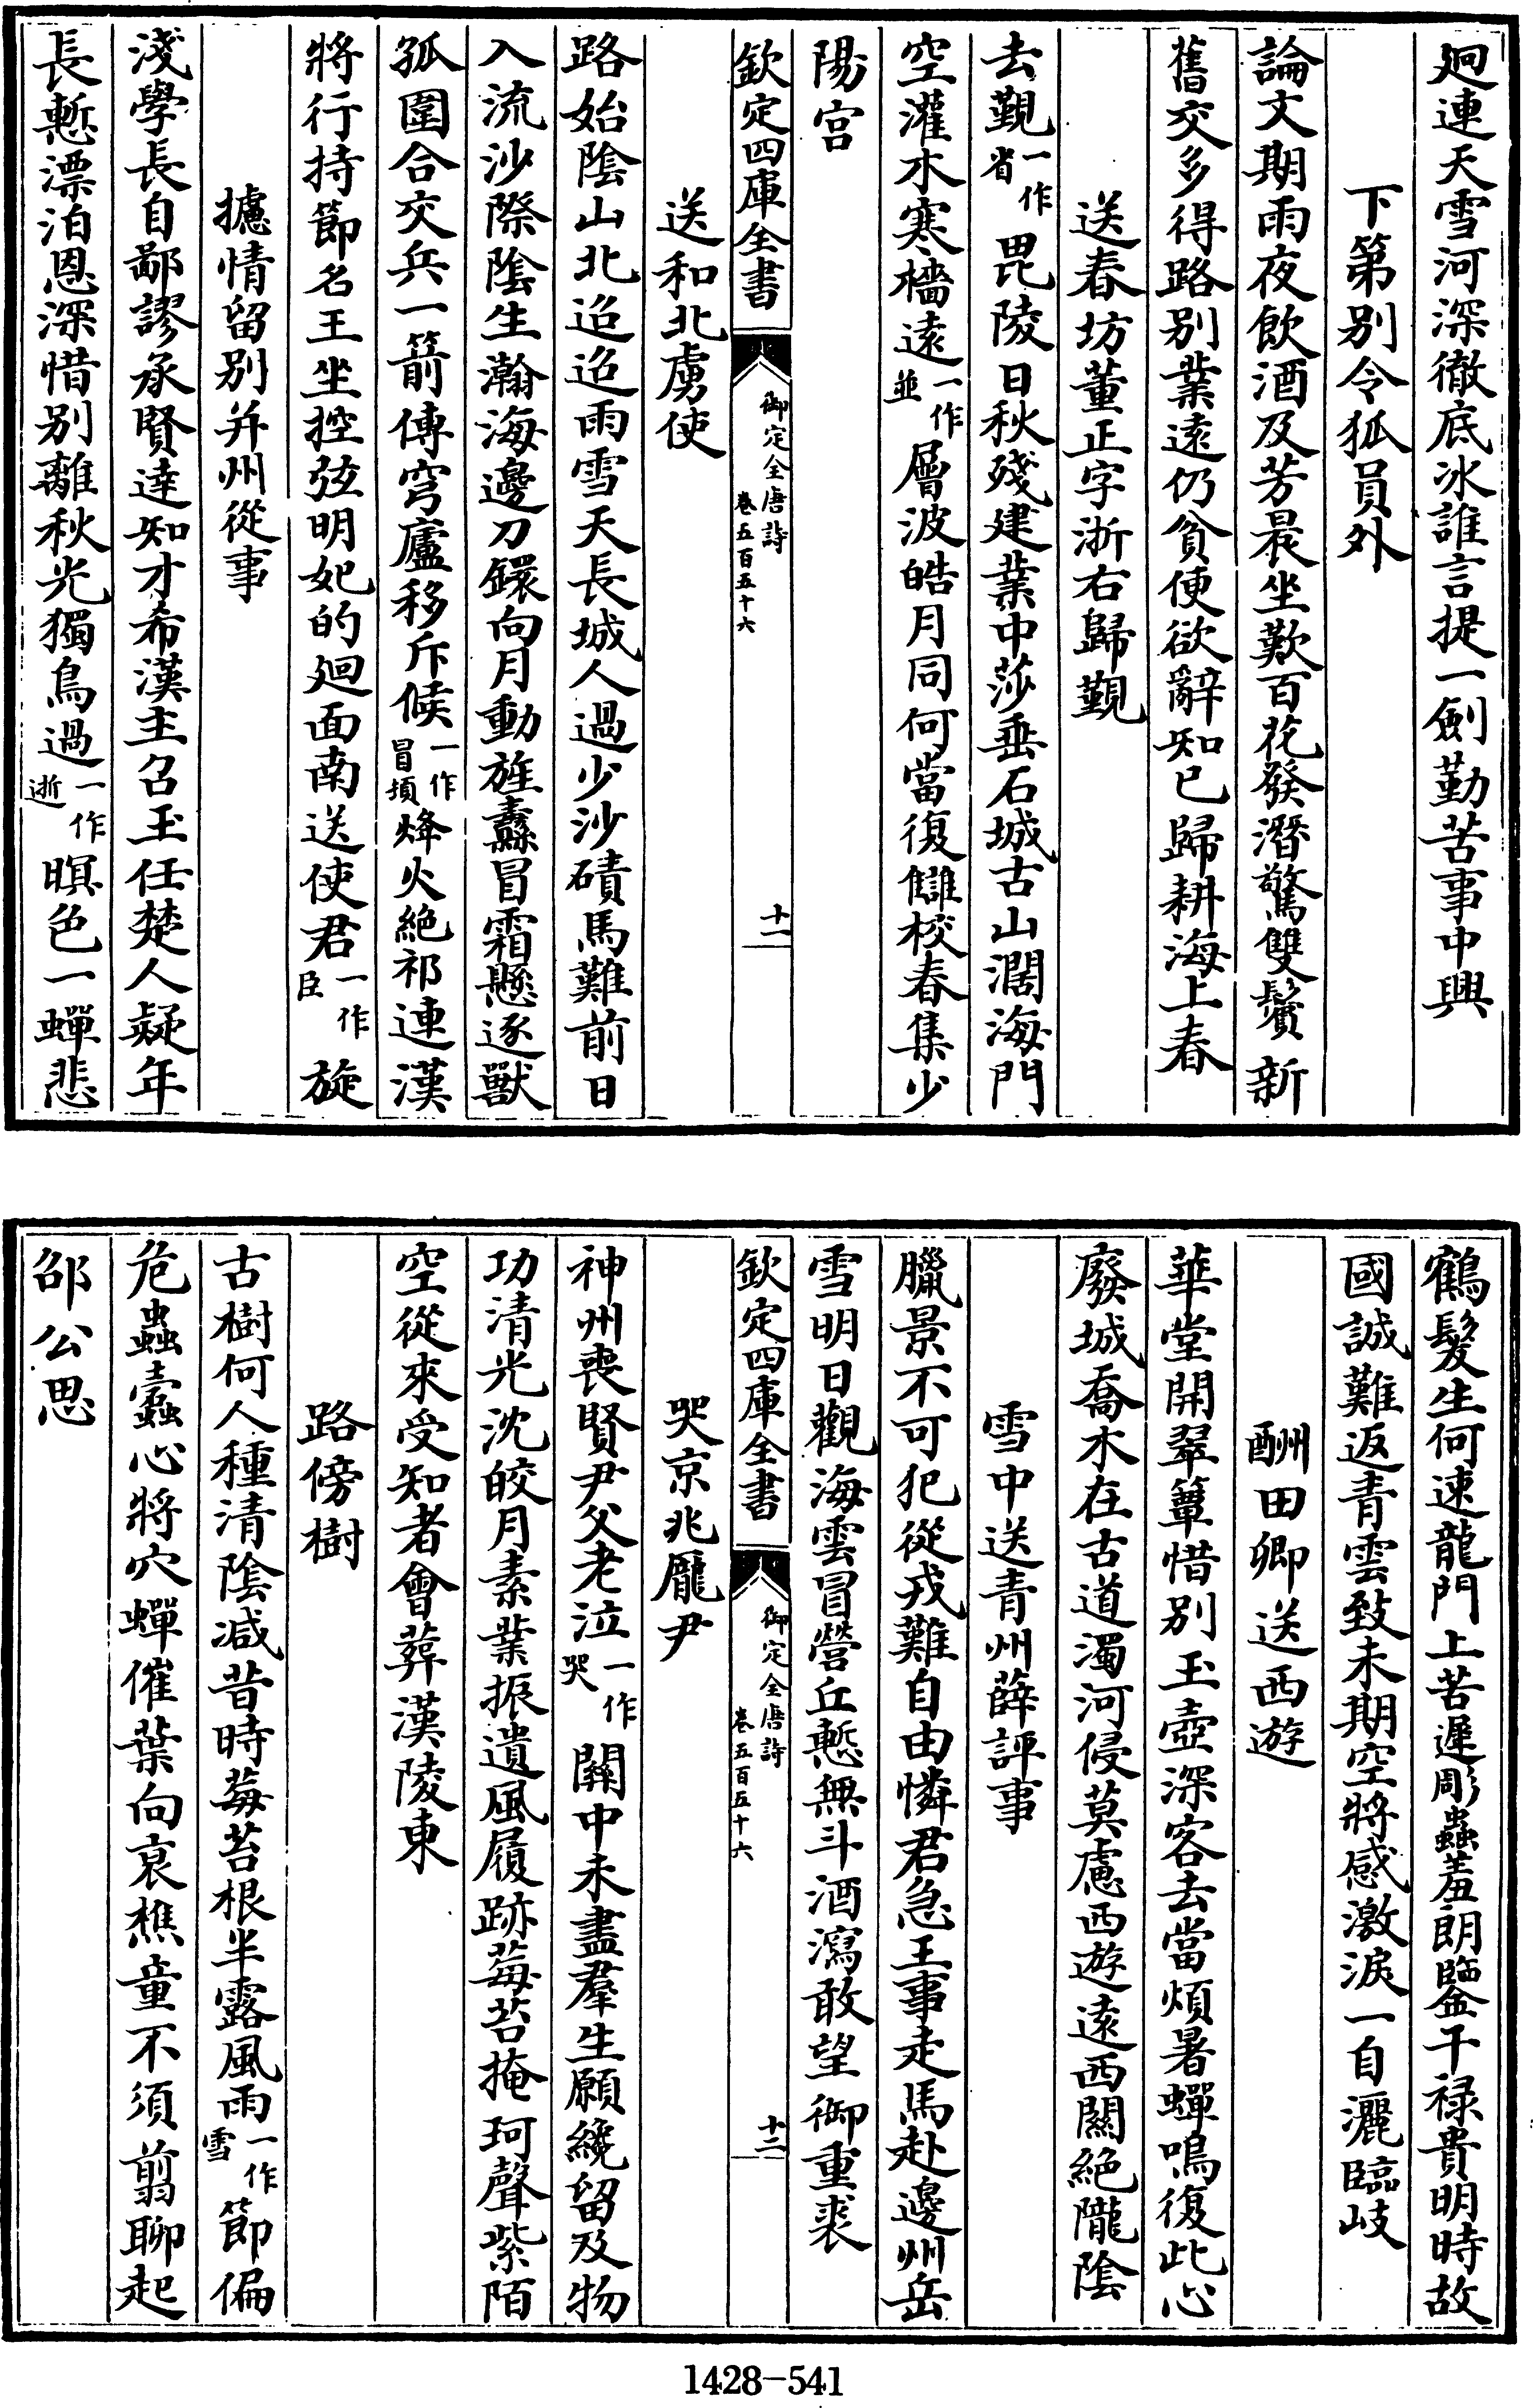 迥連天雪河深徹底冰誰言提一劍勤苦事中興
下第别令狐員外
論文期雨夜飲酒及芳晨坐歎百花發潛驚雙鬢新
舊交多得路别業遠仍貧便欲辭知已歸耕海上春
送春坊董正字浙右歸覲
去覲一作省毘陵日秋殘建業中莎垂石城古山濶海門
空灌木寒檣遠一作並層波皓月同何當復讎校春集少
陽宫
欽定四庫全書 御定全唐詩卷五百五十六 十一
送和北虜使
路始隂山北迢迢雨雪天長城人過少沙磧馬難前日
入流沙際隂生瀚海邊刀鐶向月動旌纛冒霜懸逐獸
孤圍合交兵一箭傳穹廬移斥候一作冒頓烽火絶祁連漢
將行持節名王坐控弦明妃的廻面南送使君一作臣旋
攄情留别并州從事
淺學長自鄙謬承賢達知才希漢主召玉任楚人疑年
長慙漂泊恩深惜别離秋光獨鳥過一作逝暝色一蟬悲
鶴髮生何速龍門上苦遲彫蟲羞朗鑒干禄貴明時故
國誠難返青雲致未期空將感激淚一自灑臨岐
酬田卿送西遊
華堂開翠簟惜别玉壺深客去當煩暑蟬鳴復此心
廢城喬木在古道濁河侵莫慮西遊遠西關絶隴隂
雪中送青州薛評事
臘景不可犯從戎難自由憐君急王事走馬赴邊州岳
雪明日觀海雲冒營丘慙無斗酒瀉敢望御重裘
欽定四庫全書 御定全唐詩卷五百五十六 十二
哭京兆龎尹
神州喪賢尹父老泣一作哭關中未盡羣生願纔留及物
功清光沈皎月素業振遺風履跡莓苔掩珂聲紫陌
空從來受知者會葬漢陵東
路傍樹
古樹何人種清隂减昔時莓苔根半露風雨一作雪節偏
危蟲蠹心將穴蟬催葉向衰樵童不須翦聊起
邵公思
1428-541